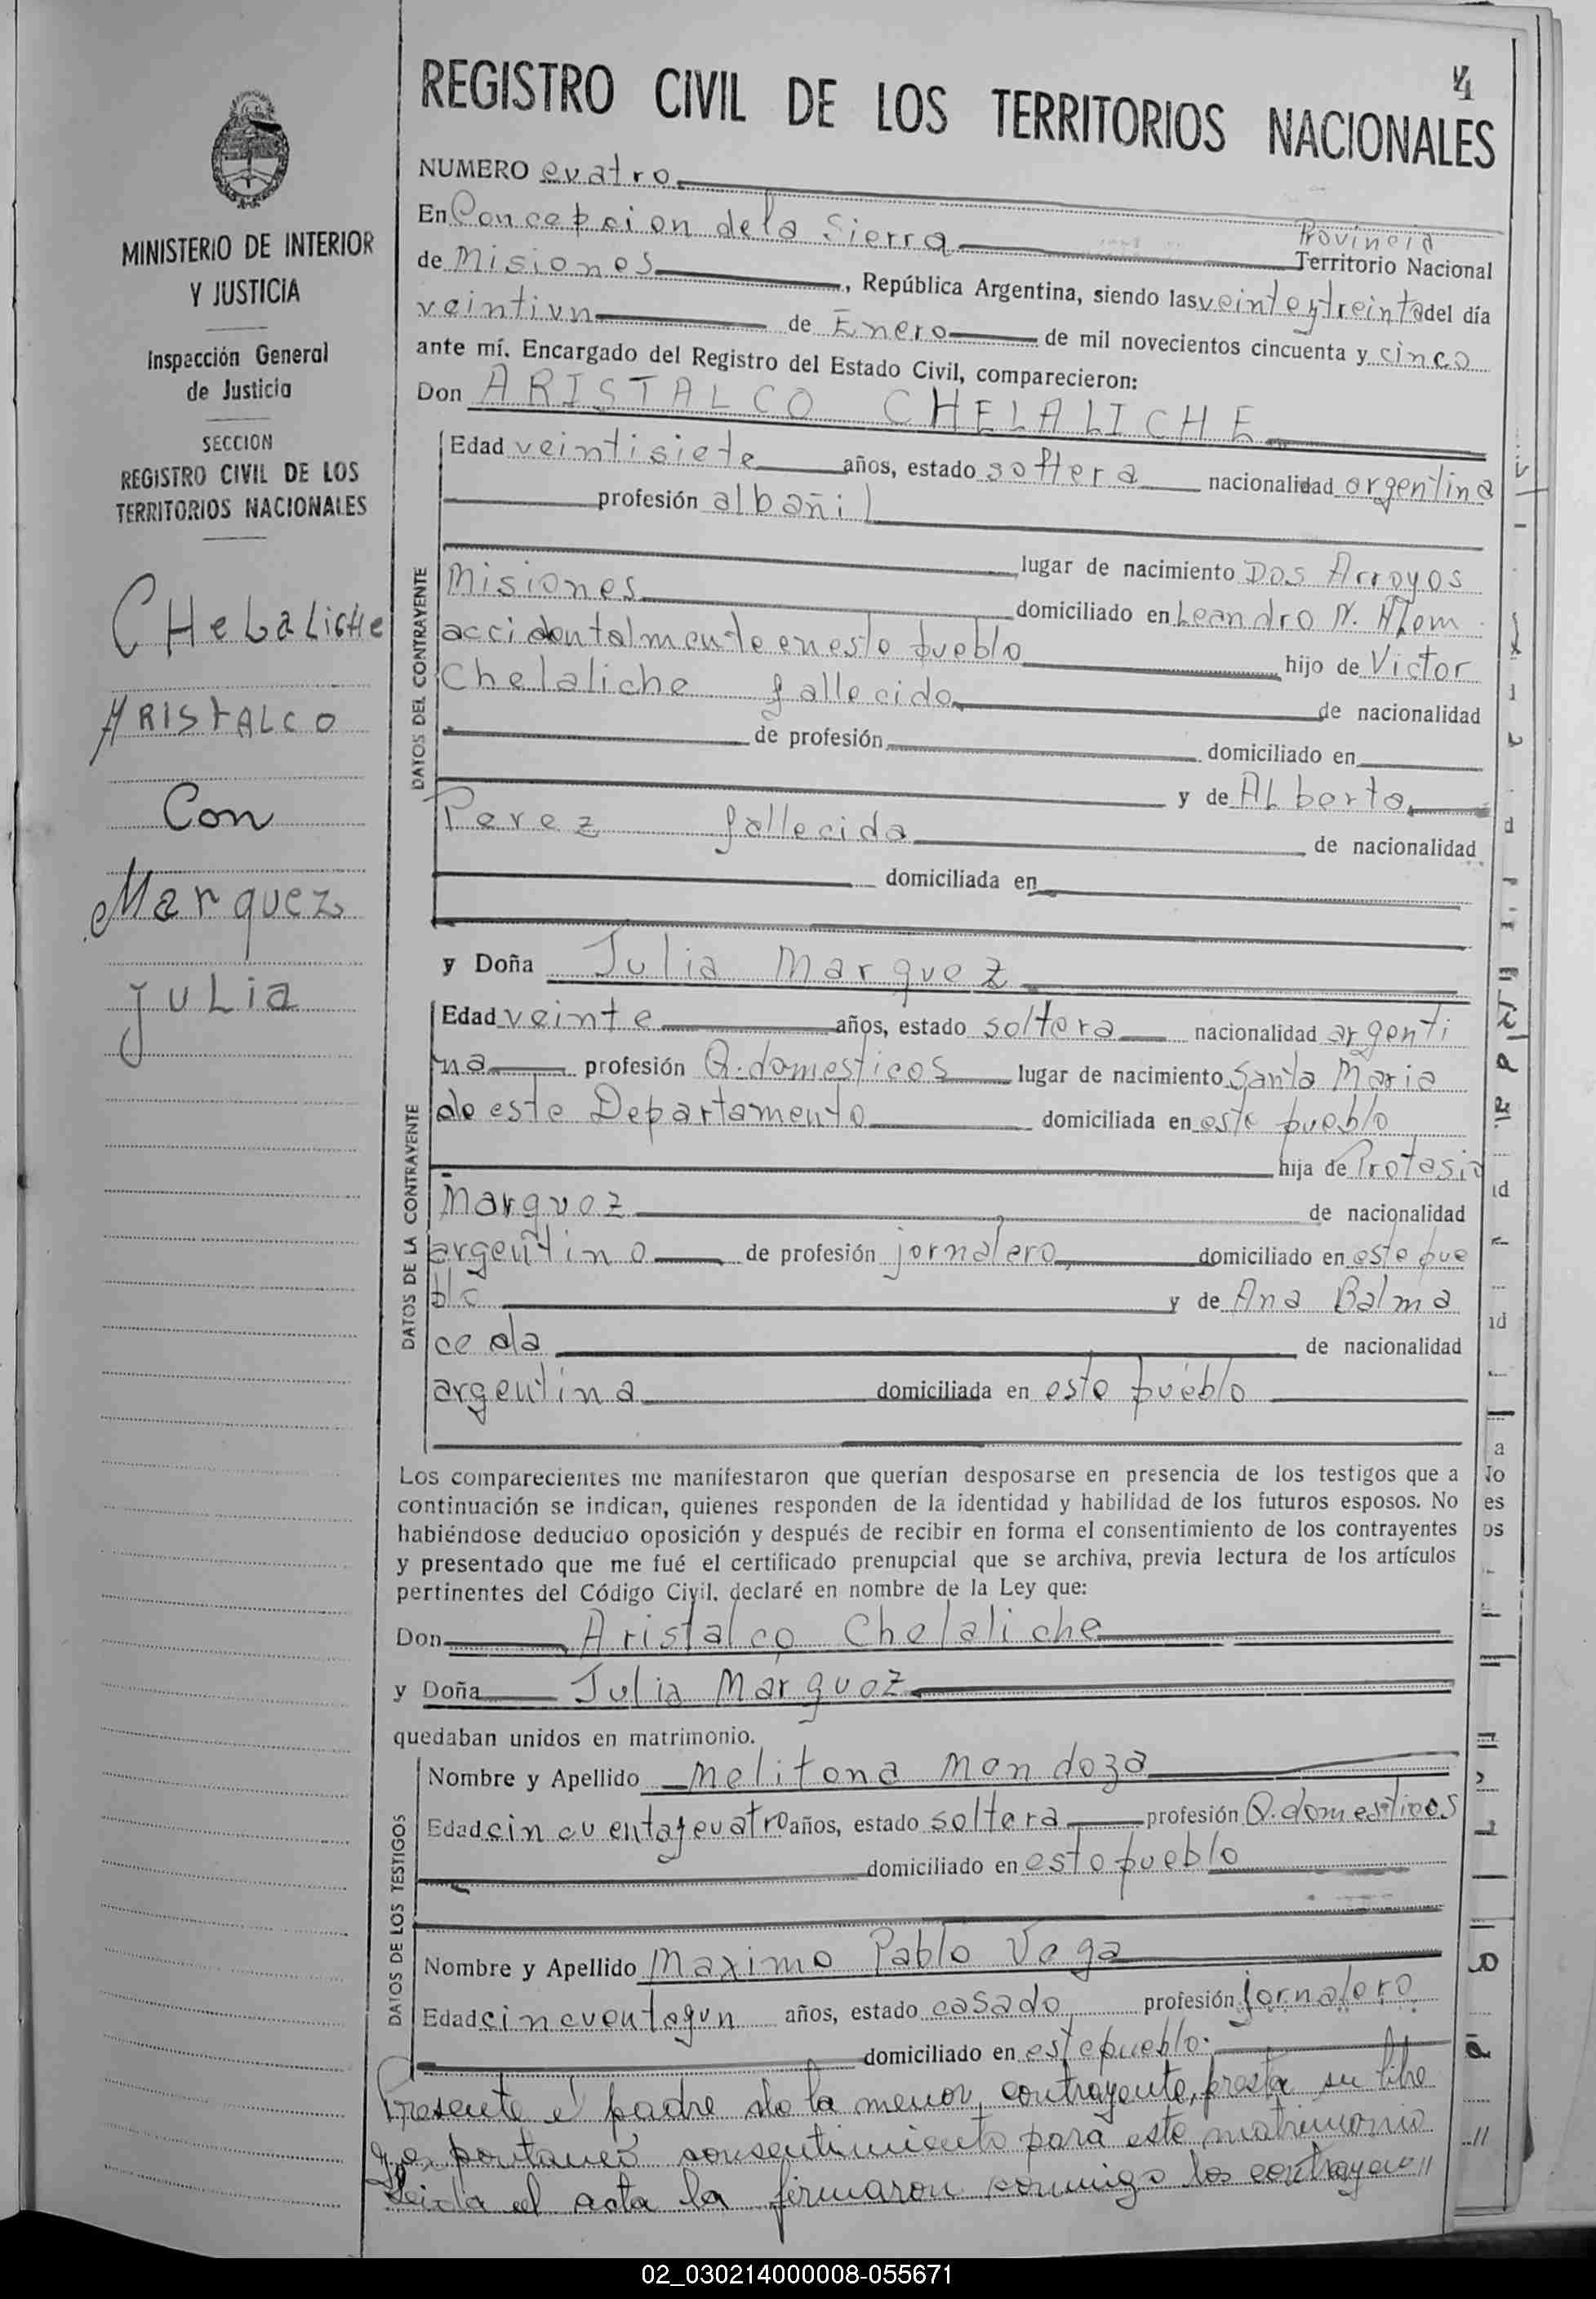 4
REGISTRO CIVIL DE LOS TERRITORIOS NACIONALES
MINISTERIO DE INTERIOR
Y JUSTICIA
Inspección General
de Justicia
SECCION
REGISTRO CIVIL DE LOS
TERRITORIOS NACIONALES
CHeLaLicHe
ARISTALCO
Con
Marquez
Julia
NUMERO cuatro
En Concepcion de la Sierra Provincia
Territorio Nacional
de Misiones, República Argentina, siendo las veinte y treinta del día
veintiun de Enero de mil novecientos cincuenta y cinco
ante mí, Encargado del Registro del Estado Civil, comparecieron:
Don ARISTALCO CHELALICHE
DATOS DEL CONTRAYENTE
Edad veintisiete años, estado soltera nacionalidad argentina
profesión albañil
lugar de nacimiento Dos Arroyos
Misiones domiciliado en Leandro N. Alem
accidentalmente en este pueblo hijo de Victor
Chelaliche fallecido de nacionalidad
de profesión domiciliado en
y de ALberta
Perez fallecida de nacionalidad
domiciliada en
y Doña Julia Marquez
DATOS DE LA CONTRAYENTE
Edad veinte años, estado soltera nacionalidad argenti
na profesión Q. domesticos lugar de nacimiento Santa Maria
de este Departamento domiciliada en este pueblo
hija de Protasio
Marquez de nacionalidad
argentino de profesión jornalero domiciliado en este pue
blo y de Ana Balma
ceda de nacionalidad
argentina domiciliada en este pueblo
Los comparecientes me manifestaron que querían desposarse en presencia de los testigos que a
continuación se indican, quienes responden de la identidad y habilidad de los futuros esposos. No
habiéndose deducido oposición y después de recibir en forma el consentimiento de los contrayentes
y presentado que me fué el certificado prenupcial que se archiva, previa lectura de los artículos
pertinentes del Código Civil, declaré en nombre de la Ley que:
Don Aristalco Chelaliche
y Doña Julia Marquez
quedaban unidos en matrimonio.
DATOS DE LOS TESTIGOS
Nombre y Apellido Melitona Mendoza
Edad cincuentaycuatro años, estado soltera profesión Q. domesticos
domiciliado en este pueblo
Nombre y Apellido Maximo Pablo Vega
Edad cincuentayun años, estado casado profesión jornalero
domiciliado en este pueblo.
Presente el padre de la menor contrayente, presta su libre
y expontaneo consentimiento para este matrimonio
Leida el acta la firmaron conmigo los contrayen//
02_030214000008-055671